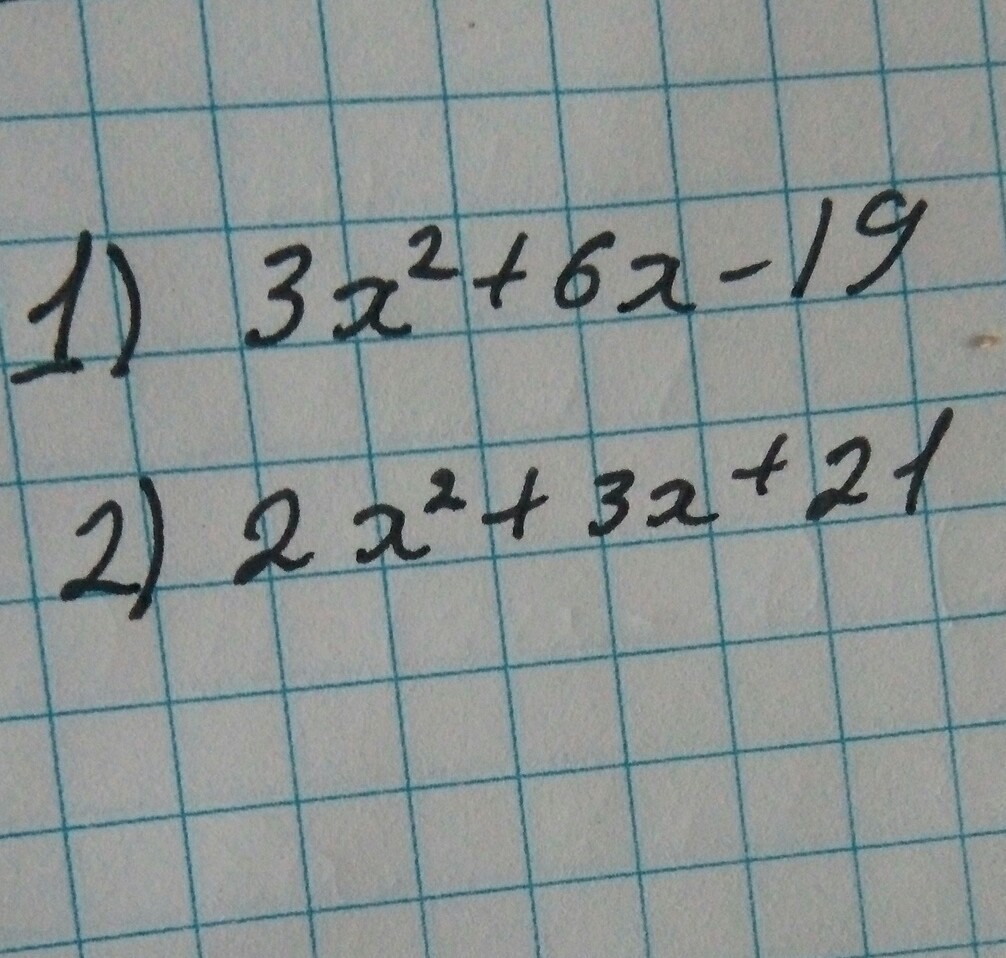 1) 3x² + 6x - 19
2) 2x² + 3x + 21